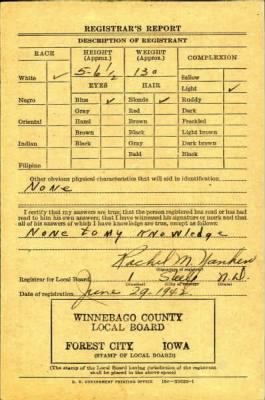 REGISTRAR'S REPORT
DESCRIPTION OF REGISTRANT
RACE HEIGHT (Approx.) WEIGHT (Approx.) COMPLEXION
White ✓ 5-6½ 130 Sallow
EYES HAIR Light ✓
Negro Blue ✓ Blonde ✓ Ruddy
Gray Red Dark
Oriental Hazel Brown Freckled
Brown Black Light brown
Indian Black Gray Dark brown
Bald Black
Filipino
Other obvious physical characteristics that will aid in identification
None
I certify that my answers are true; that the person registered has read or has had
read to him his own answers; that I have witnessed his signature or mark and that
all of his answers of which I have knowledge are true, except as follows:
None to my knowledge
Rachel M.
Registrar for Local Board 1 Steele N.D.
Date of registration June 29, 1942
WINNEBAGO COUNTY
LOCAL BOARD
FOREST CITY IOWA
(STAMP OF LOCAL BOARD)
(The stamp of the Local Board having jurisdiction of the registrant
shall be placed in the above space)
U. S. GOVERNMENT PRINTING OFFICE